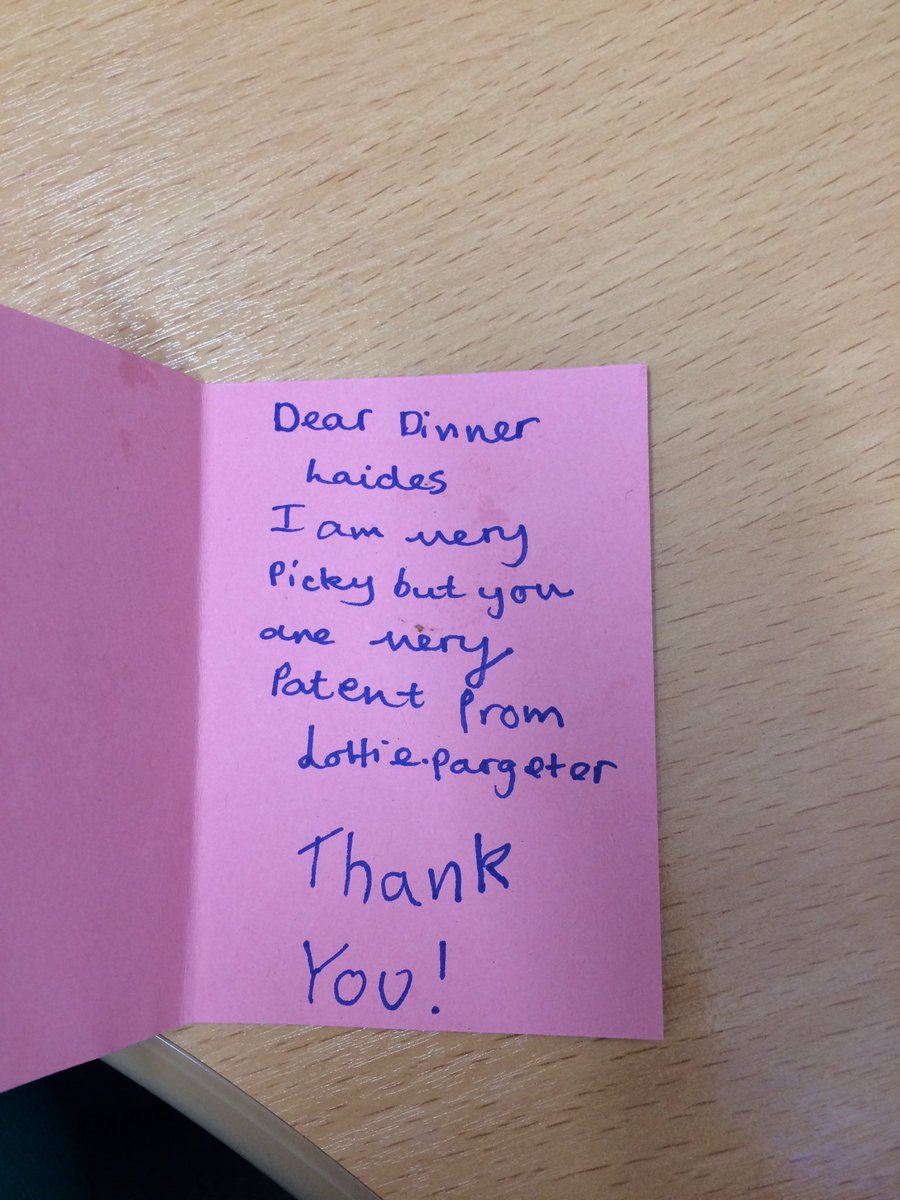 Dear Dinner
Laides
I am very
Picky but you
are very
Patent from
Lottie.pargeter
Thank
You!